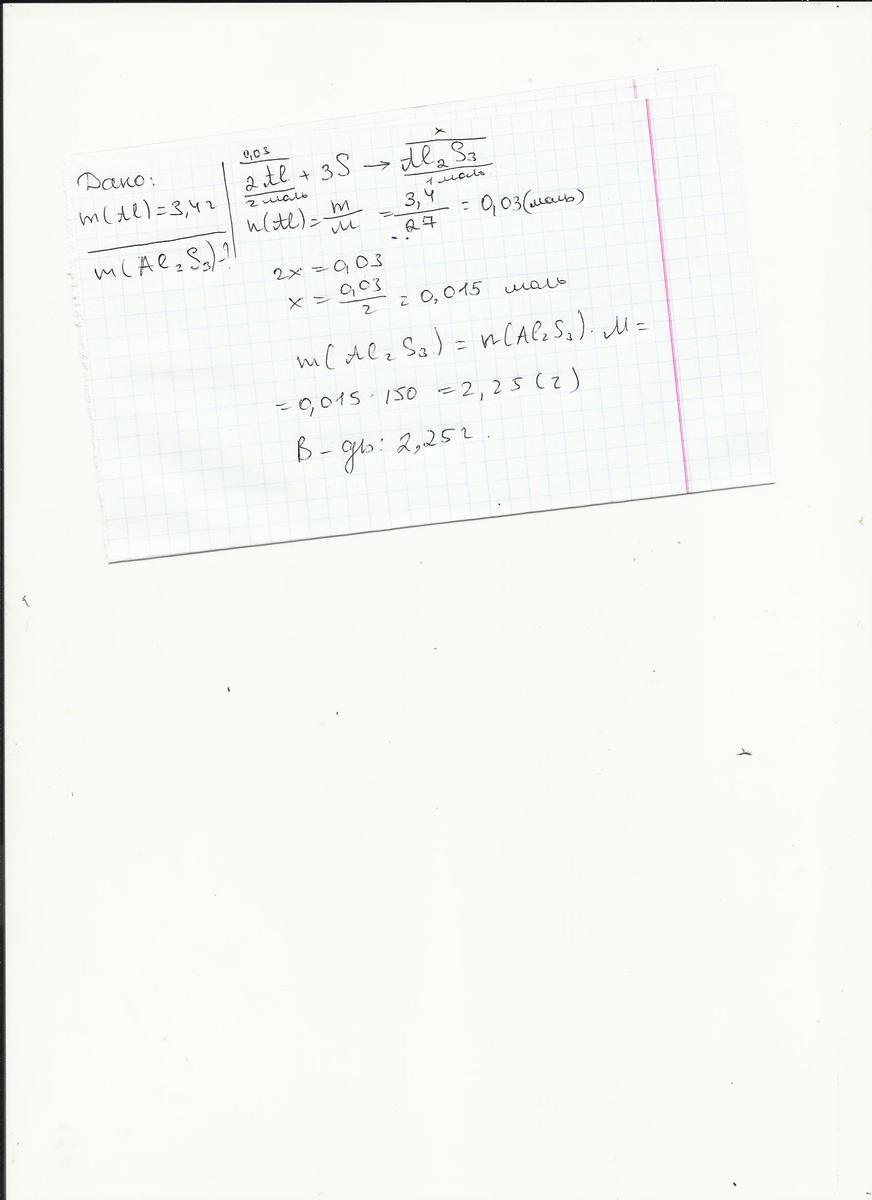 Дано:
m(Al) = 3,4 г
m(Al₂S₃) - ?
0,03 x
2Al + 3S → Al₂S₃
2 моль 1 моль
n(Al) = m/M = 3,4/27 = 0,03 (моль)
2x = 0,03
x = 0,03/2 = 0,015 моль
m(Al₂S₃) = n(Al₂S₃) · M =
= 0,015 · 150 = 2,25 (г)
В-дь: 2,25 г.